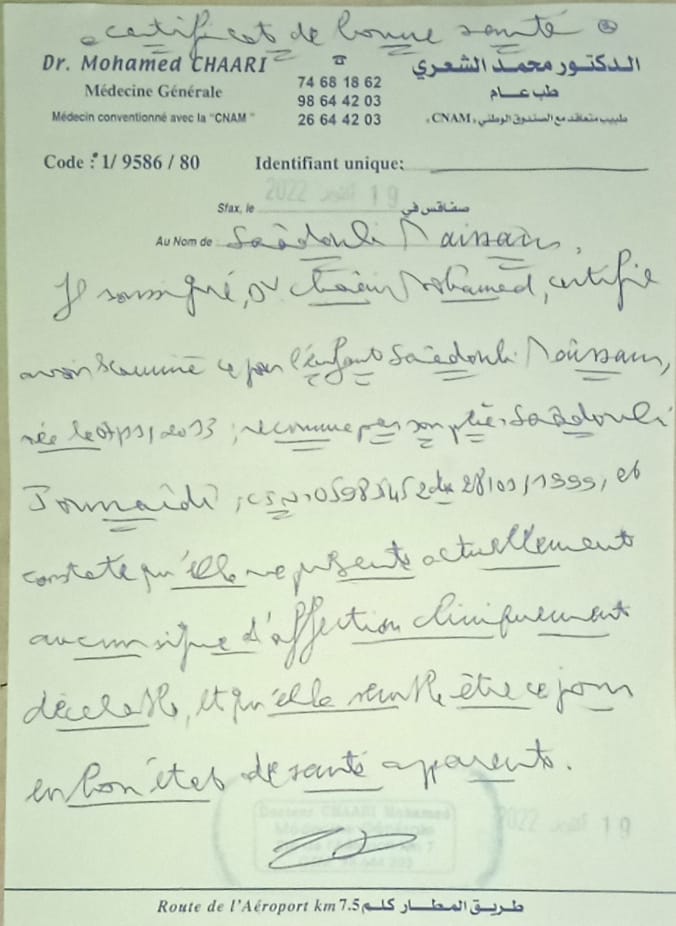 certificat de bonne santé
Dr. Mohamed CHAARI
Médecine Générale
Médecin conventionné avec la "CNAM"
☎
74 68 18 62
98 64 42 03
26 64 42 03
الدكتور محمد الشعري
طب عام
طبيب متعاقد مع الصندوق الوطني «CNAM»
Code : 1/ 9586 / 80 Identifiant unique:
Sfax, le 19 أكتوبر 2022 صفاقس في
Au Nom de Saâdouli Maissan,
Je soussigné, Dr Chaari Mohamed, certifie
avoir examiné ce jour l'enfant Saâdouli Maissan,
née le 2013, reconnue par son père Saâdouli
du 28/01/1999, et
constate qu'elle ne présente actuellement
aucun signe d'affection cliniquement
décelable, et qu'elle semble être ce jour
en bon état de santé apparente.
Docteur CHAARI Mohamed
Médecine Générale
19 أكتوبر 2022
Route de l'Aéroport km 7.5 طريق المطار كلم